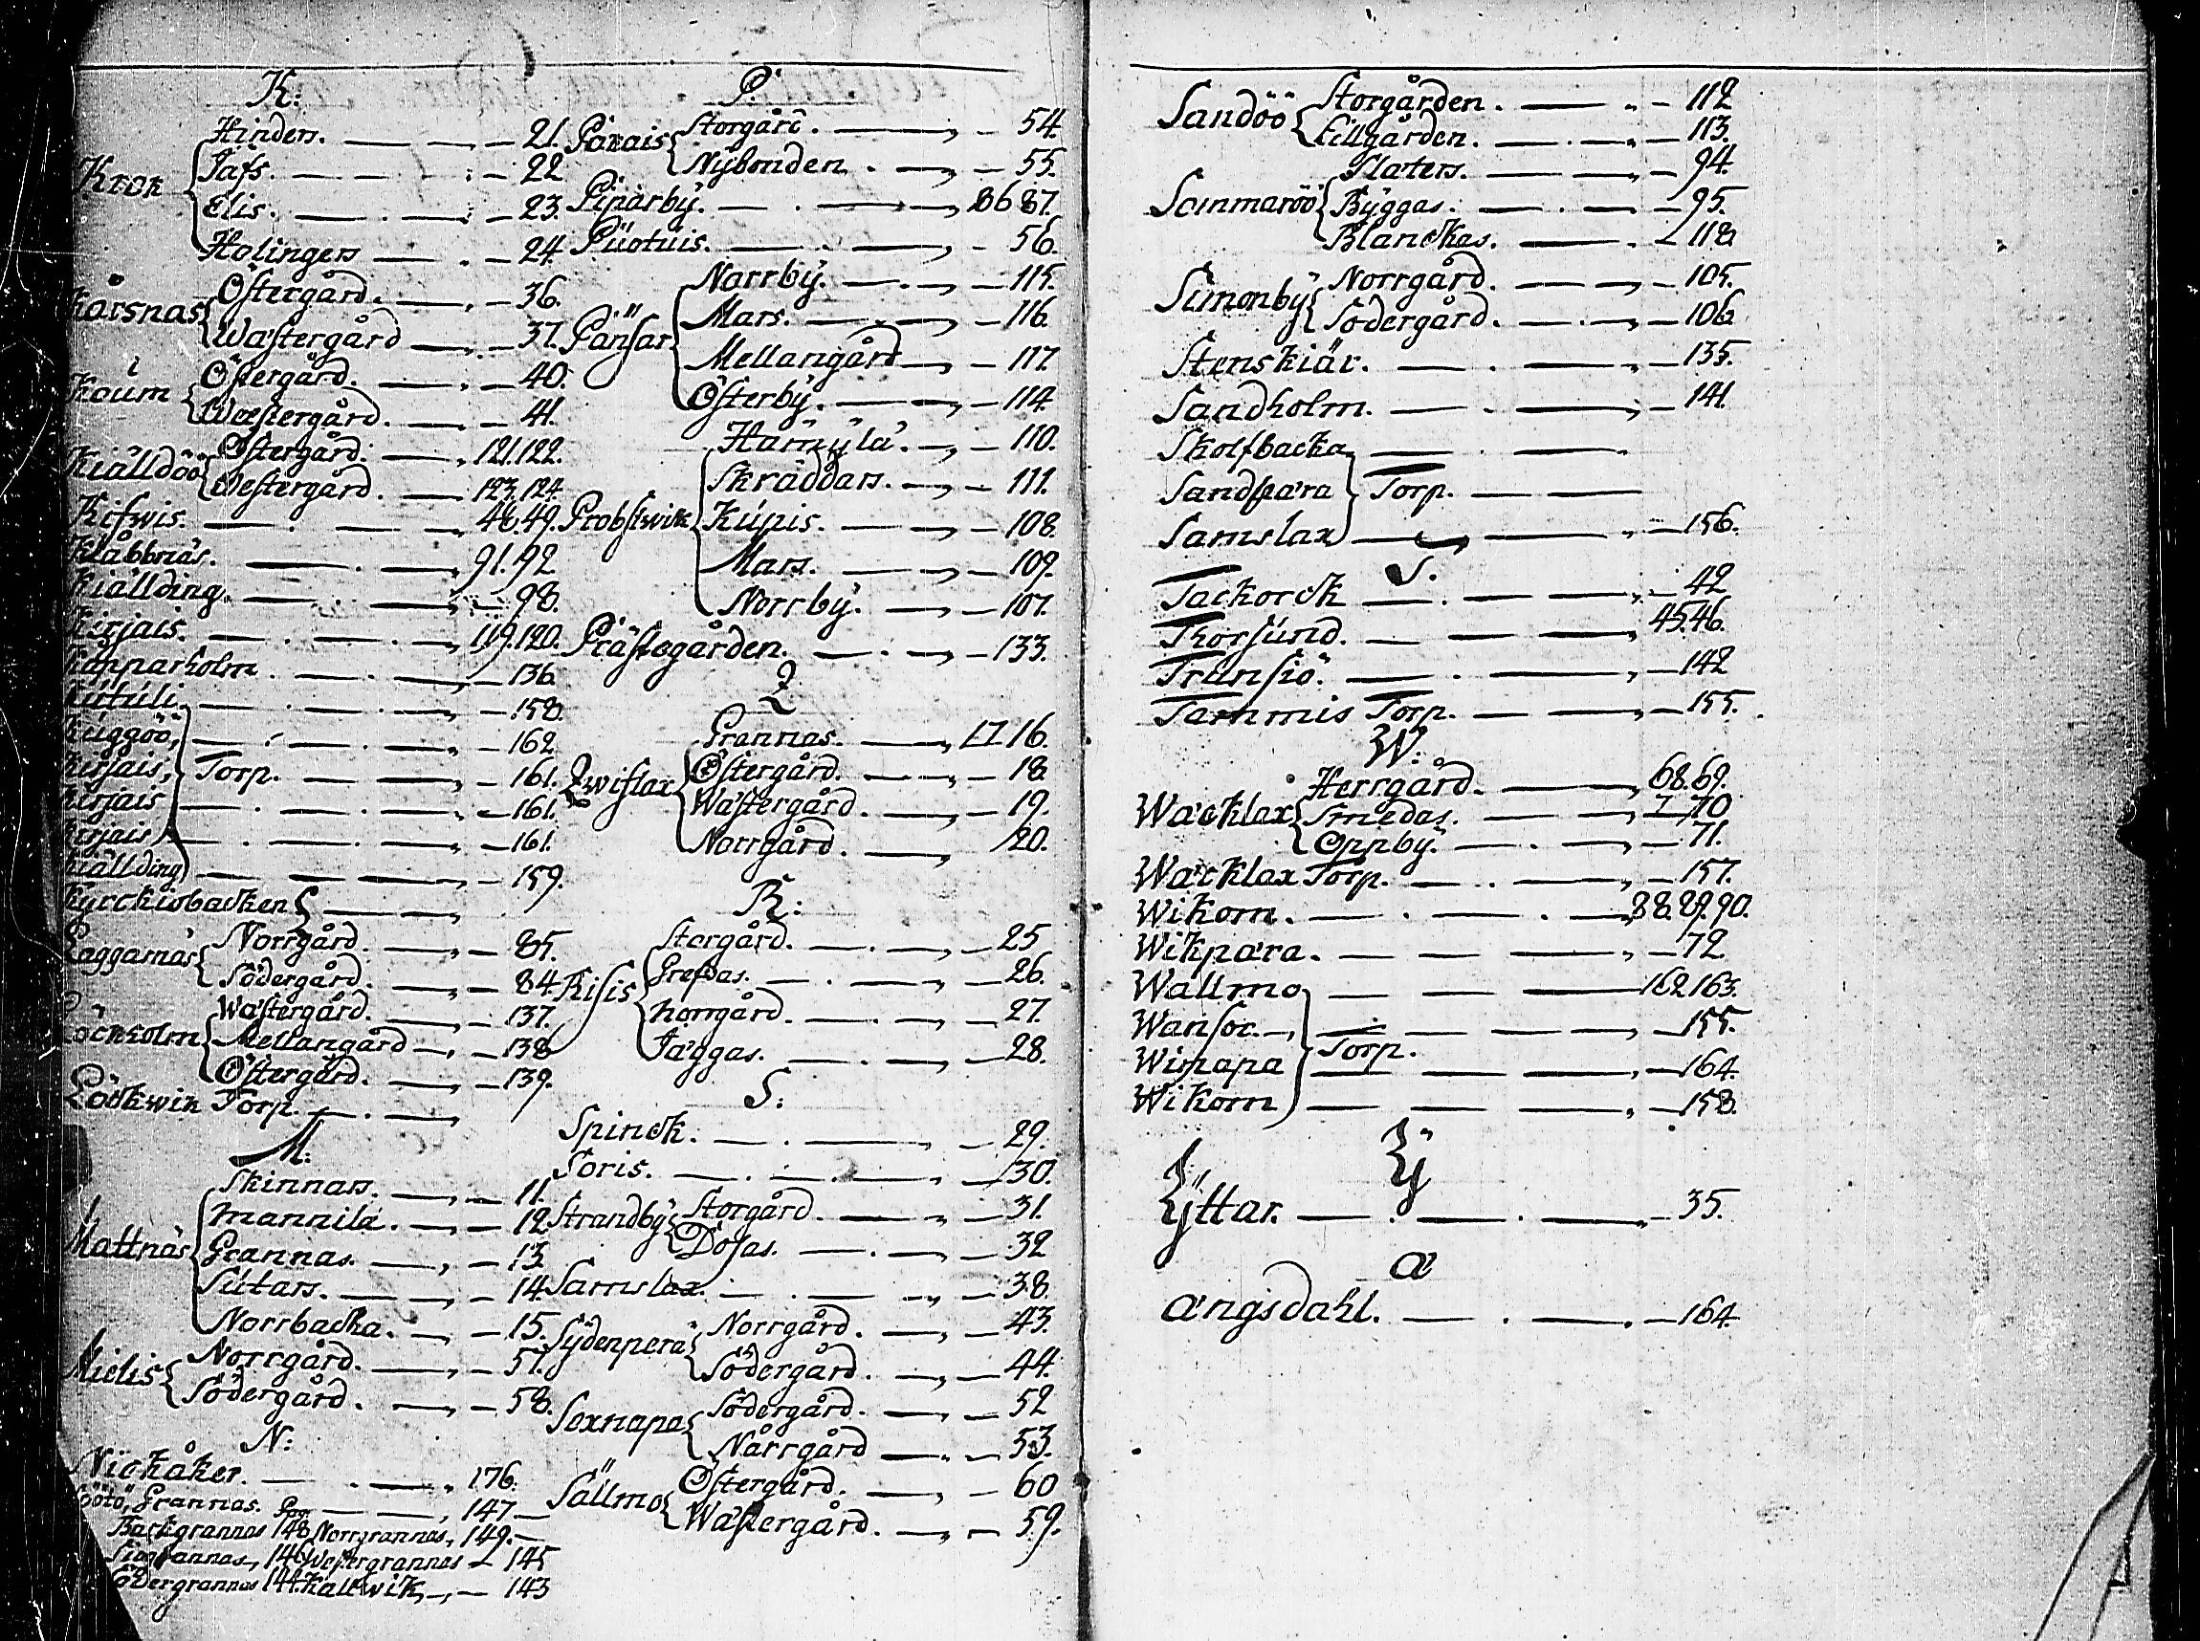 K:
Hinders. 21.
Krok Jafs. 22
Elis. 23.
Holingers 24.
Kårsnäs Östergård. 36.
Wästergård 37.
Koum Östergård. 40.
Wästergård. 41.
Kiälldöö Östergård. 121.122.
Westergård. 123.124.
Kifwis. 48.49.
Klåbbnäs. 91.92
Kiällding. 98.
Kirjais. 119.120.
Kopparholm 136.
Kutuli. 158.
Kuggöö, 162
Kirjais, Torp. 161.
Kirjais 161.
Kirjais 161.
Kiällding 159.
Kyrckiobacken
Laggarnäs Norrgård. 85.
Södergård. 84
Wästergård. 137.
Löckholm Mellangård 138
Östergård. 139.
Löckwik Torp.
M:
Skinnars. 11.
Mannila. 12
Mattnäs Grannas. 13
Sutars. 14
Norrbacka. 15.
Mielis Norrgård. 57.
Södergård. 58.
N:
Niökåker. 176.
Nötö, Grannas. 147
Backgrannas 148 Norrgrannas, 149.
146 Westergrannas 145
Södergrannas 144. Kalkwik, 143
P.
Parais Storgård. 54.
Nybonden. 55.
Piparby. 86 87.
Puotuis. 56.
Norrby. 115.
Pänsar Mars. 116.
Mellangård 117
Österby. 114.
Hämylä. 110.
Skräddars. 111.
Probstwik Kupis. 108.
Mars. 109.
Norrby. 107.
Prästegården. 133.
Q
Grannas. 17 16.
Qwislax Östergård. 18.
Wästergård. 19.
Norrgård. 20.
R:
Storgård. 25
Risis Grefdas. 26.
Norrgård. 27.
Jäggas. 28.
S:
Spinck. 29.
Soris. 30.
Strandby Storgård. 31.
Dosas. 32
Samslax. 38.
Sydenperä Norrgård. 43.
Södergård. 44.
Sexnapa Södergård. 52
Nårrgård 53.
Sällmo Östergård. 60
Wästergård. 59.
Sandöö Storgården. 112
Lillgården. 113.
Slaters. 94.
Sommaröö Byggas. 95.
Blanckas. 118.
Simonby Norrgård. 105.
Södergård. 106.
Stenskiär. 135.
Sandholm. 141.
Skolfbacka
Sandpära Torp.
Samslax 156.
T.
Tackorck 42
Thorsund. 45.46.
Trunsiö. 142
Tammis Torp. 155.
W:
Herrgård. 68.69.
Wäcklax Smedas. 70
Oppby. 71.
Wäcklax Torp. 157.
Wikom. 88.89.90.
Wikpära. 72.
Wallmo 162 163.
Wansor. 155.
Wipapa Torp. 164.
Wikom 158.
Y
Yttar. 35.
Ä
Ängsdahl. 164.